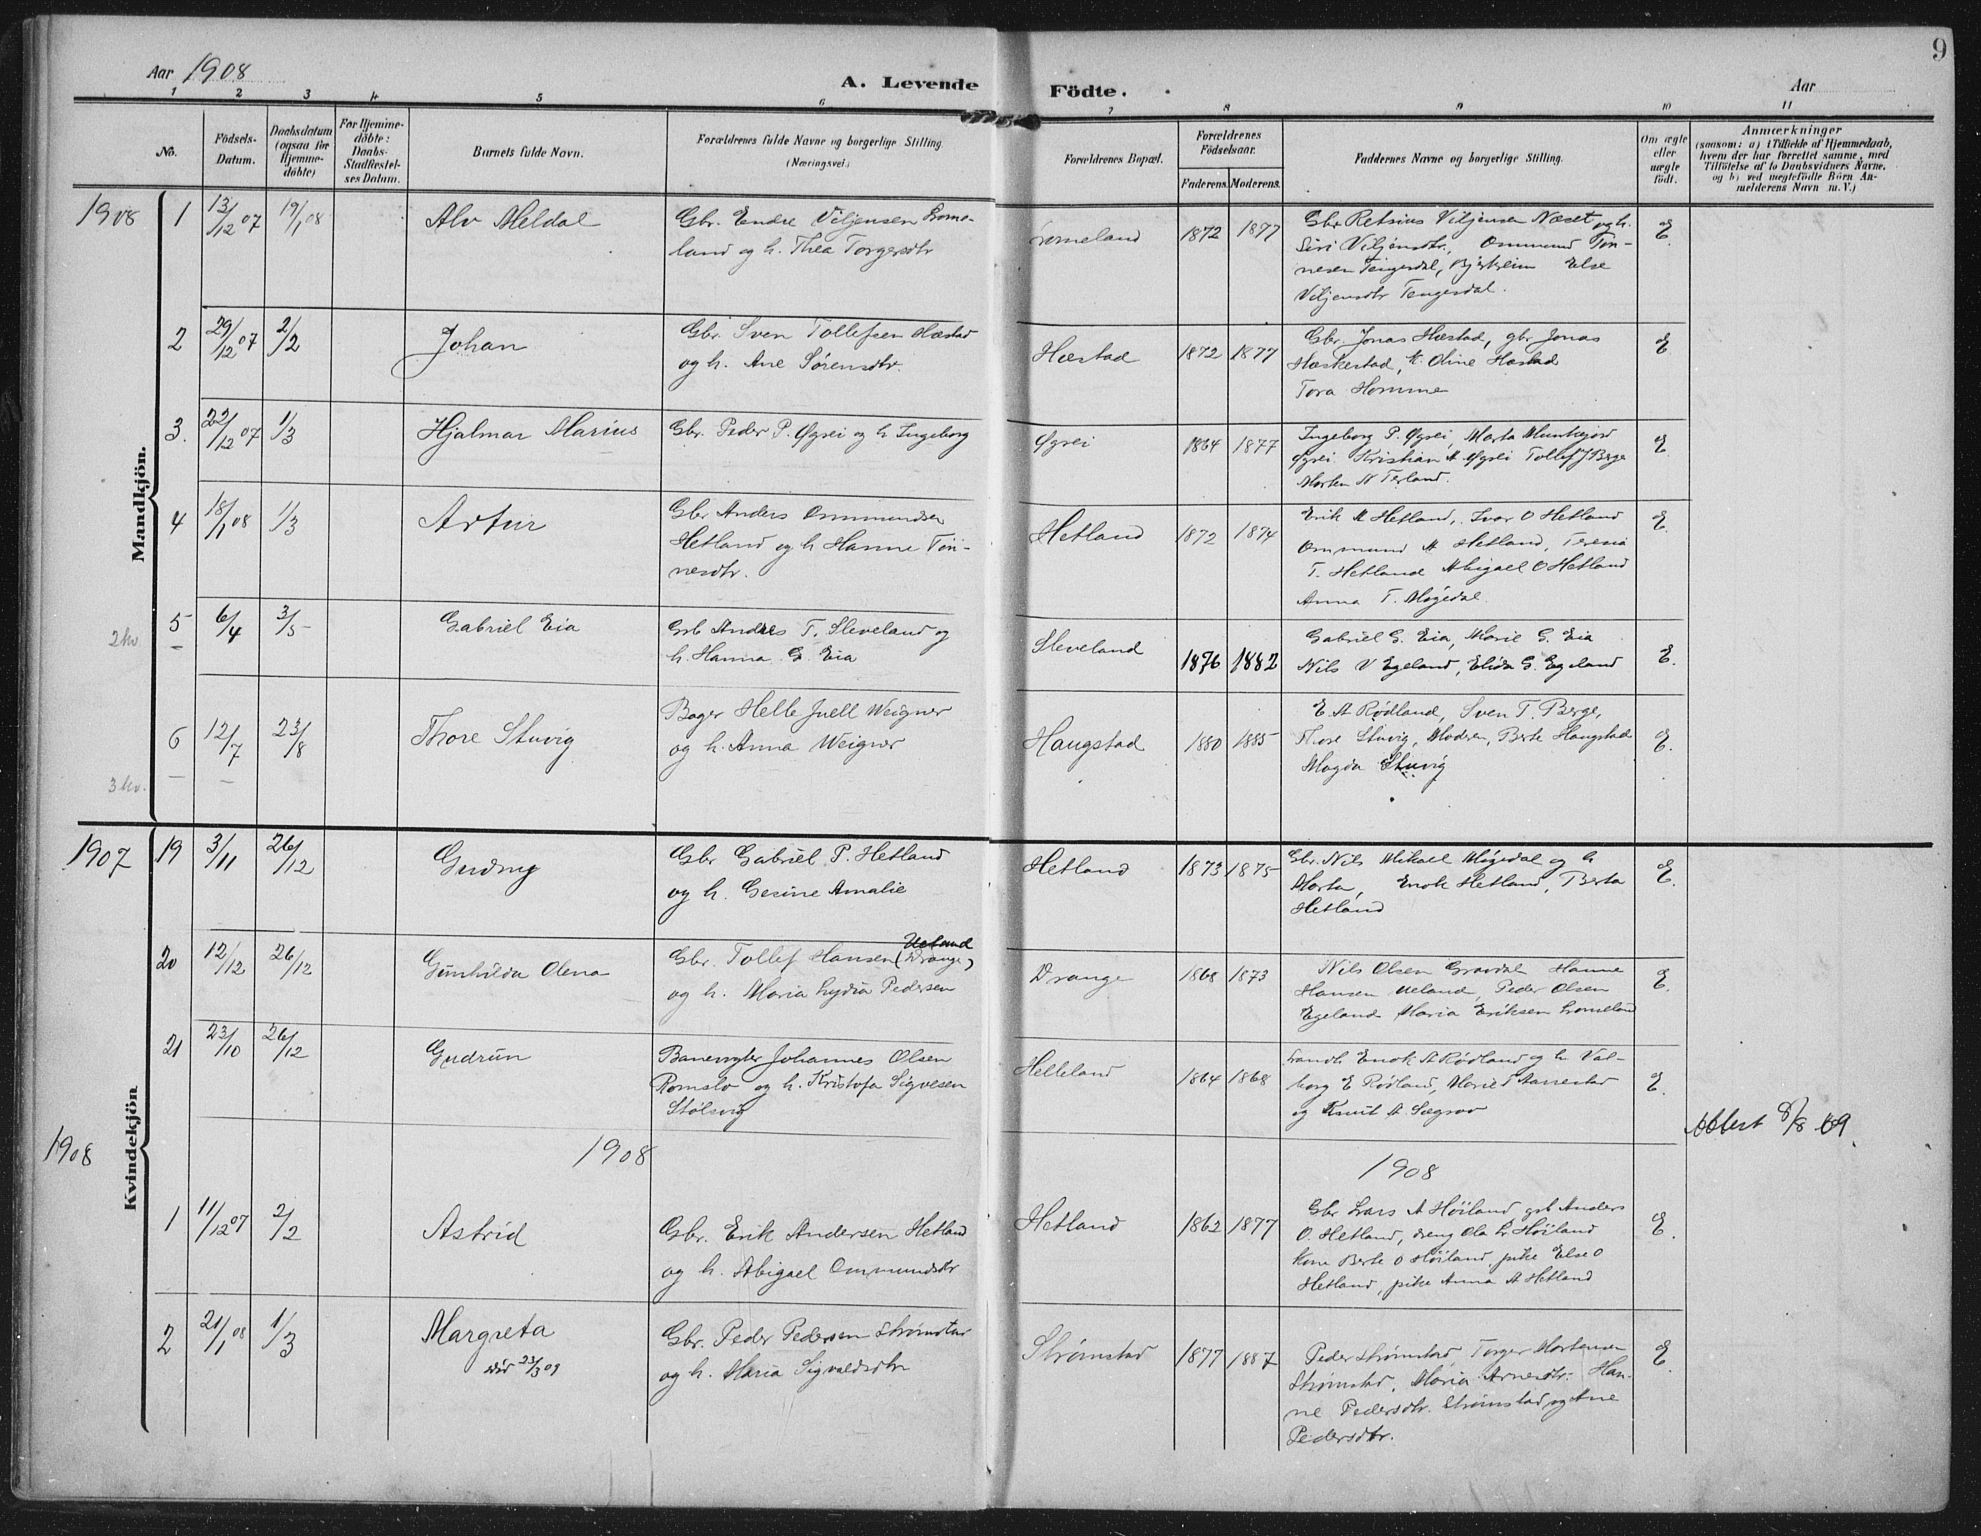 Aar 1908
A. Levende Födte.
Aar
9
1 2 3 4 5 6 7 8 9 10 11
No.
Födsels-Datum.
Daabsdatum (ogsaa for Hjemme-döbte)
For Hjemme-döbte: Daabs-Stadfæstel-ses Datum.
Barnets fulde Navn.
Forældrenes fulde Navne og borgerlige Stilling (Næringsvei.)
Forældrenes Bopæl.
Forældrenes Födselsaar.
Faderens. Moderens.
Faddernes Navne og borgerlige Stilling.
Om ægte eller uægte födt.
Anmærkninger
(saasom: a) i Tilfælde af Hjemmedaab, hvem der har forrettet samme, med Tilföielse af to Daabsvidners Navne, og b) ved uægtefödte Börn An-melderens Navn m. V.)
Mandkjön.
1908 1 13/12 07 19/1 08 Alv Meldal
Gbr. Endre Viljensen Lome-
land og h. Thea Torgersdtr
Lomeland 1872 1877
Gbr Retsius Viljensen Næset og h.
Siri Viljensdtr, Ommund Tön-
nesen Tengesdal, Bjerkreim Else
Viljensdtr Tengesdal.
E.
2 29/12 07 2/2 Johan
Gbr. Sven Tollefsen Hæstad
og h. Ane Sørensdtr.
Hæstad 1872 1877
Gbr. Jonas Hæstad, gbr Jonas
Hæskestad, k. Oline Hæstad
Tora Homme
E
3. 22/12 07 1/3 Hjalmar Marius
Gbr. Peder P. Øgrei og h Ingeborg
Øgrei 1864 1877
Ingeborg P. Øgrei, Marta Munkejord
Øgrei Kristian A Øgrei Tollef J Berge
Morten N Terland.
E.
4 18/1 08 1/3 Artur
Gbr Anders Ommundsen
Hetland og h Hanne Tön-
nesdtr.
Hetland 1872 1874
Erik A Hetland, Ivar O Hetland
Ommund A Hetland, Teresia
T. Hetland Abigael O Hetland
Anna T. Møgedal.
E.
2 kv
5 6/4 3/5 Gabriel Eia
Grb Andres T. Sleveland og
h. Hanna G Eia
Sleveland 1876 1882
Gabriel G. Eia, Marie G. Eia
Nils V Egeland, Elida G. Egeland
E.
6 12/7 23/8 Thore Stuvig
Bager Helle Juell Weigner
og h. Anna Weigner
Haugstad 1880 1885
E A Rødland, Sven T. Berge,
Thore Stuvig, Moderen, Berte Haugstad
Magda Stuvig
E.
3 kv.
Kvindekjön
1907 19 3/11 26/12 Gudny
Gbr Gabriel P. Hetland
og h. Gesine Amalie
Hetland 1873 1875
Gbr. Nils Mikael Møgedal og h
Marta, Enok Hetland, Berta
Hetland
E.
20 12/12 26/12 Gunhilda Olena
Ueland
Gbr. Tollef Hansen (Drange)
og h. Maria Lydia Pedersen
Drange 1868 1873
Nils Olsen Gravdal Hanne
Hansen Ueland, Peder Olsen
Egeland Maria Eriksen Lomeland
E.
21 23/10 26/12 Gudrun
Banevogter Johannes Olsen
Romslo og h. Kristofa Sigvesen
Stølsvig
Helleland 1864 1868
Landh Enok A Rødland og h Val-
borg E Rødland, Marie T Aarrestad
og Knut A Sægrov
E.
Attest 8/8 69.
1908
1908
1908
1 11/12 07 2/2 Astrid
Gbr. Erik Andersen Hetland
og h. Abigael Ommundsdtr
Hetland 1862 1877
Gbr Lars A Høiland grb Anders
O. Hetland, dreng Ola L Høiland
Kone Berte O Høiland pike Else O
Hetland, pike Anna A Hetland
E.
2 21/1 08 1/3 Margreta
død 23/3 09
Gbr. Peder Pedersen Strømstad
og h. Maria Sigvaldsdtr
Strømstad 1877 1887
Peder Strømstad Torger Mortensen
Strømstad, Maria Arnesdtr. Han-
ne Pedersdtr. Strømstad og Ane
Pedersdtr.
E.